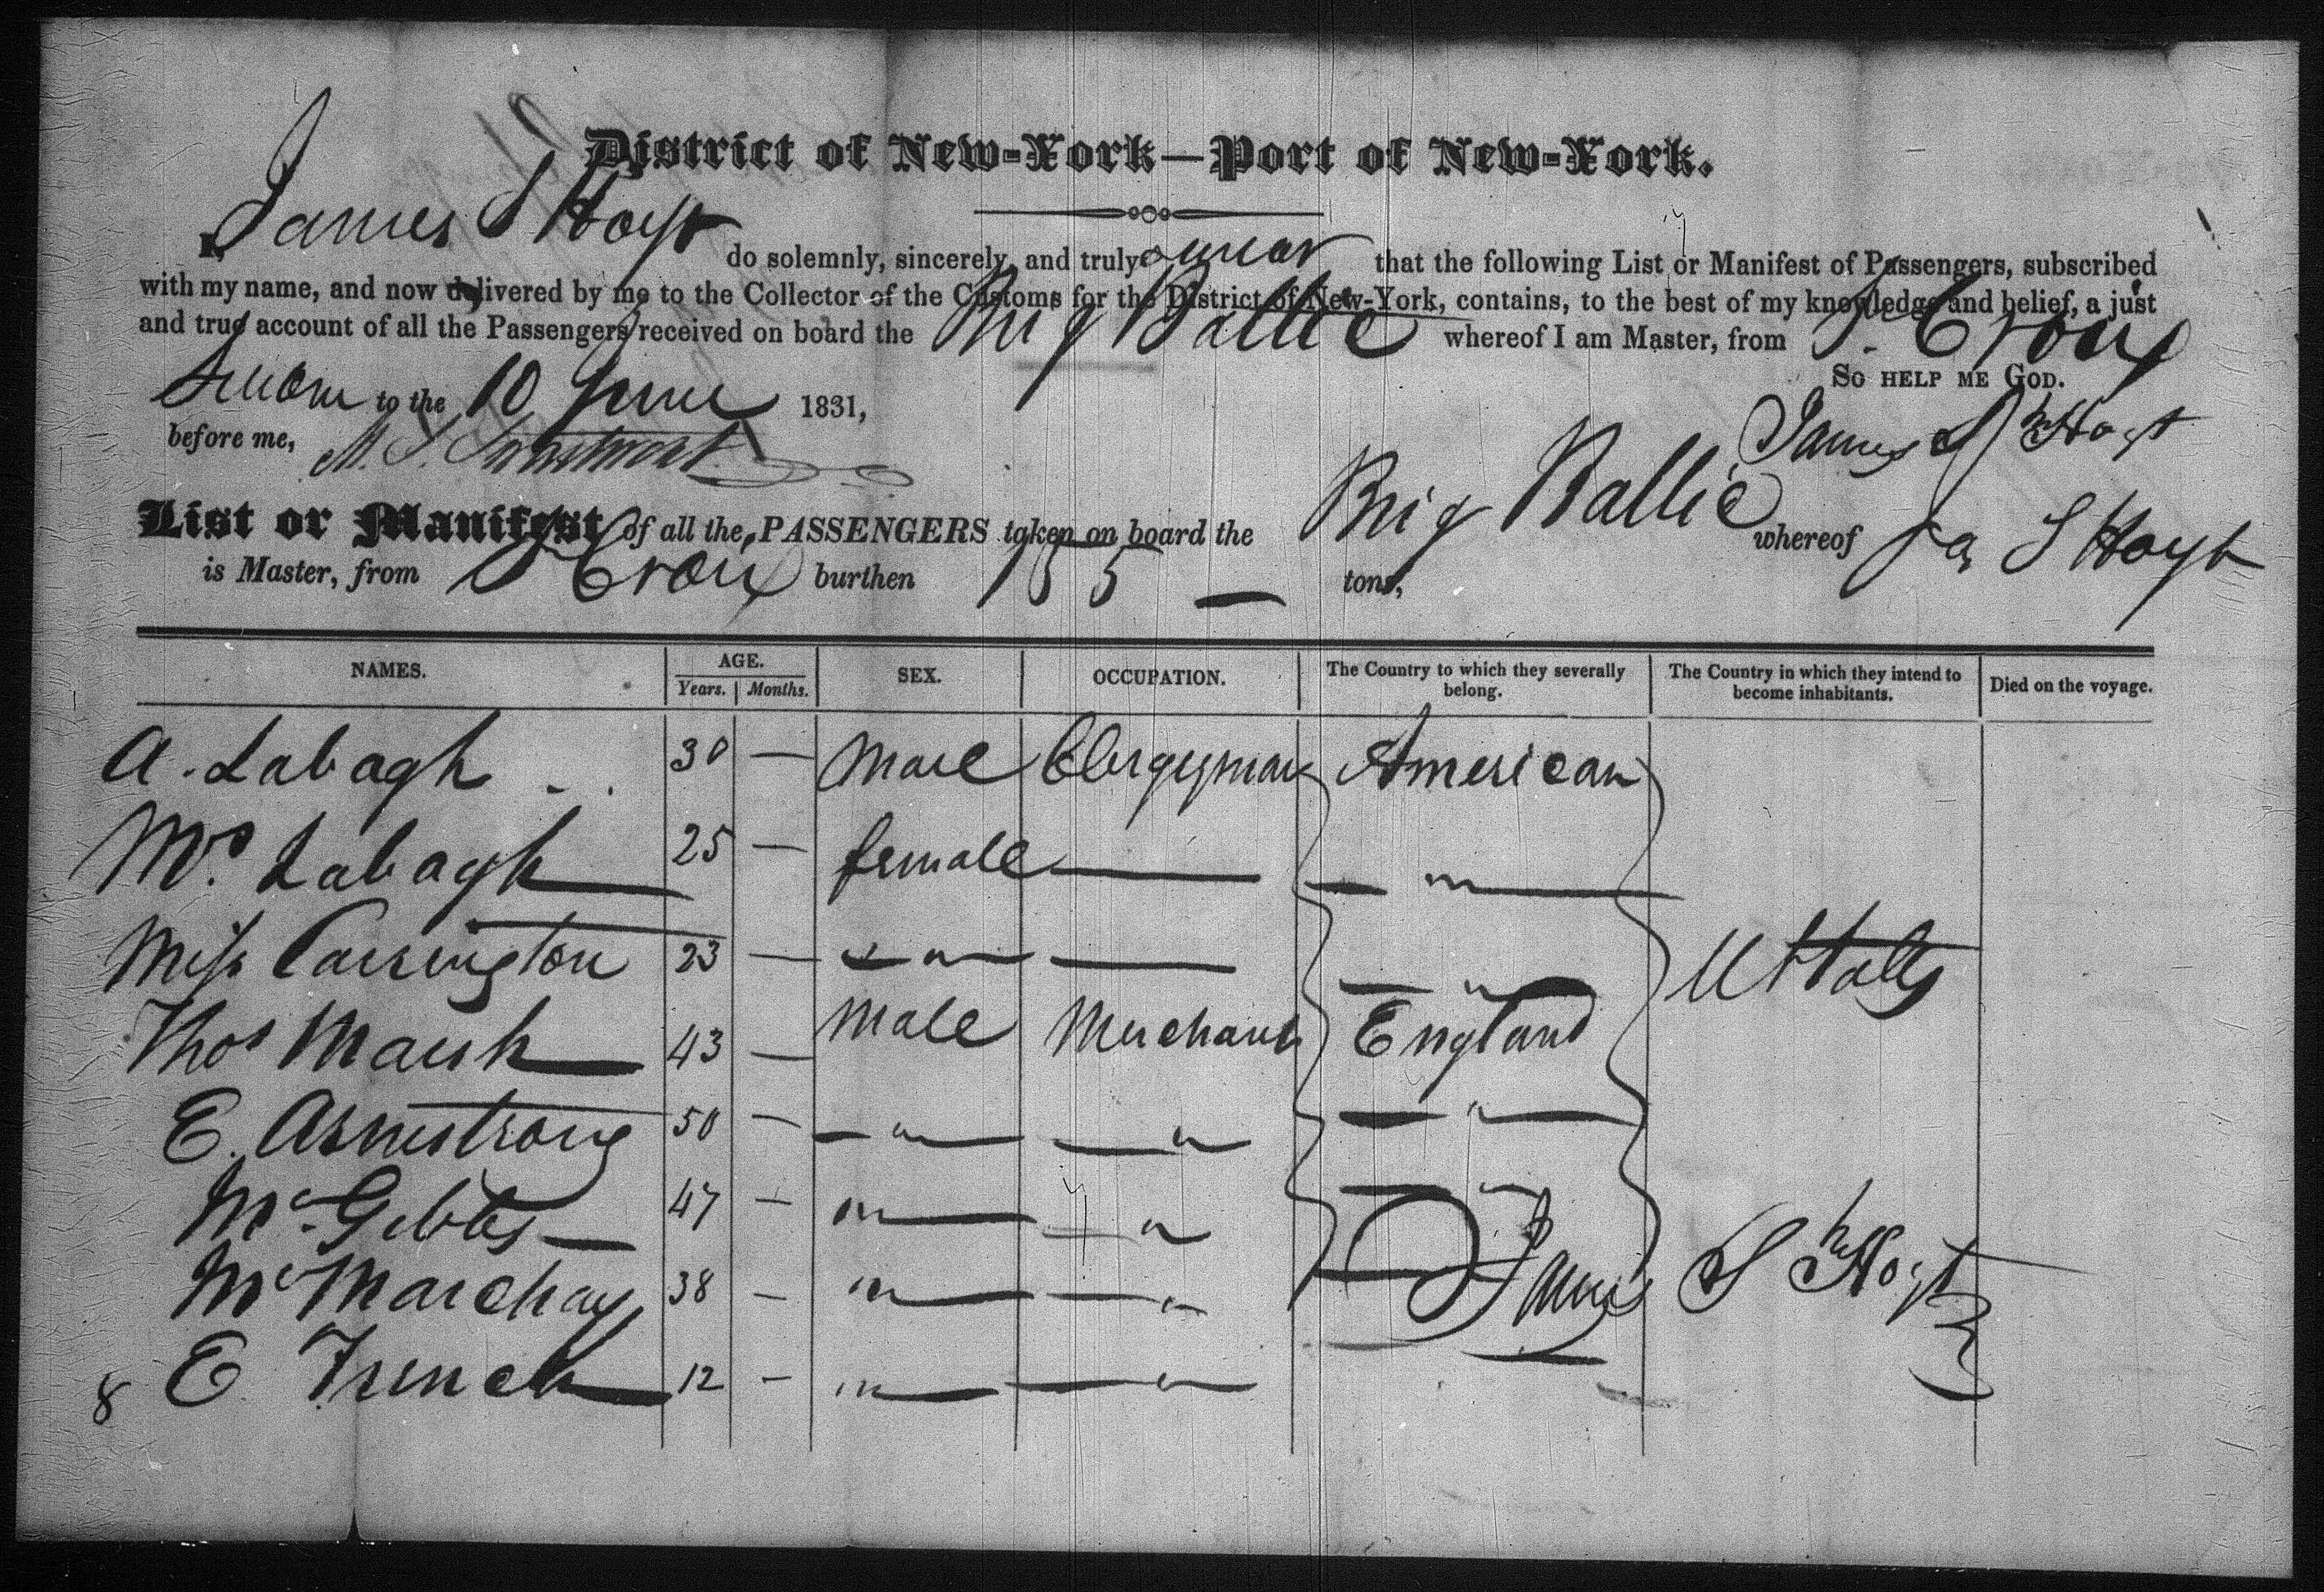 District of New-York—Port of New-York.
I, James S Hoyt do solemnly, sincerely, and truly swear that the following List or Manifest of Passengers, subscribed
with my name, and now delivered by me to the Collector of the Customs for the District of New-York, contains, to the best of my knowledge and belief, a just
and true account of all the Passengers received on board the Brig whereof I am Master, from St. Croix
So help me God.
Sworn to the 10 June 1831,
before me,
James S Hoyt
List or Manifest of all the PASSENGERS taken on board the Brig whereof Jas S Hoyt
is Master, from St Croix burthen 155 — tons,
NAMES. AGE. SEX. OCCUPATION. The Country to which they severally belong. The Country in which they intend to become inhabitants. Died on the voyage.
Years. Months.
A. Labagh 30 — Male Clergyman American
Mrs. Labagh 25 — female — — " —
Miss Carrington 23 — — " — — — " — U States
Thos Marsh 43 — Male Merchant England
E. Armstrong 50 — — " — — " — " —
Mr. Gibbs 47 — " — — " — " —
Mr 38 — " — — "
James S Hoyt
8 E. French 12 — " — — " —